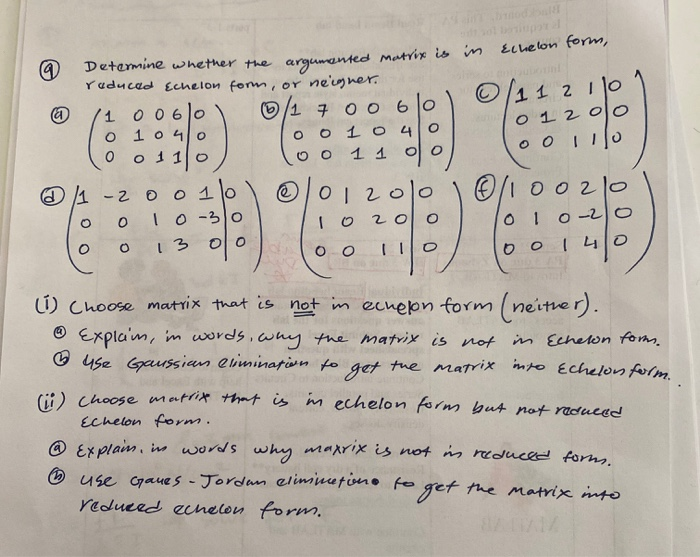 ⑨ Determine whether the argumented matrix is in Echelon form,
reduced Echelon form, or neigner.
ⓐ (1 0 0 6 | 0 ⓑ (1 7 0 0 6 | 0 ⓒ (1 1 2 1 | 0
0 1 0 4 | 0 0 0 1 0 4 | 0 0 1 2 0 | 0
0 0 1 1 | 0) 0 0 1 1 0 | 0) 0 0 1 1 | 0)
ⓓ (1 -2 0 0 1 | 0 ⓔ (0 1 2 0 | 0 ⓕ (1 0 0 2 | 0
0 0 1 0 -3 | 0 1 0 2 0 | 0 0 1 0 -2 | 0
0 0 1 3 0 | 0) 0 0 1 1 | 0) 0 0 1 4 | 0)
(i) Choose matrix that is not in echelon form (neither).
ⓐ Explain, in words, why the matrix is not in Echelon form.
ⓑ Use Gaussian elimination to get the matrix into Echelon form.
(ii) Choose matrix that is in echelon form but not reduced
Echelon form.
ⓐ Explain, in words why maxrix is not in reduced form.
ⓑ use Gaues-Jordan elimination to get the matrix into
reduced echelon form.